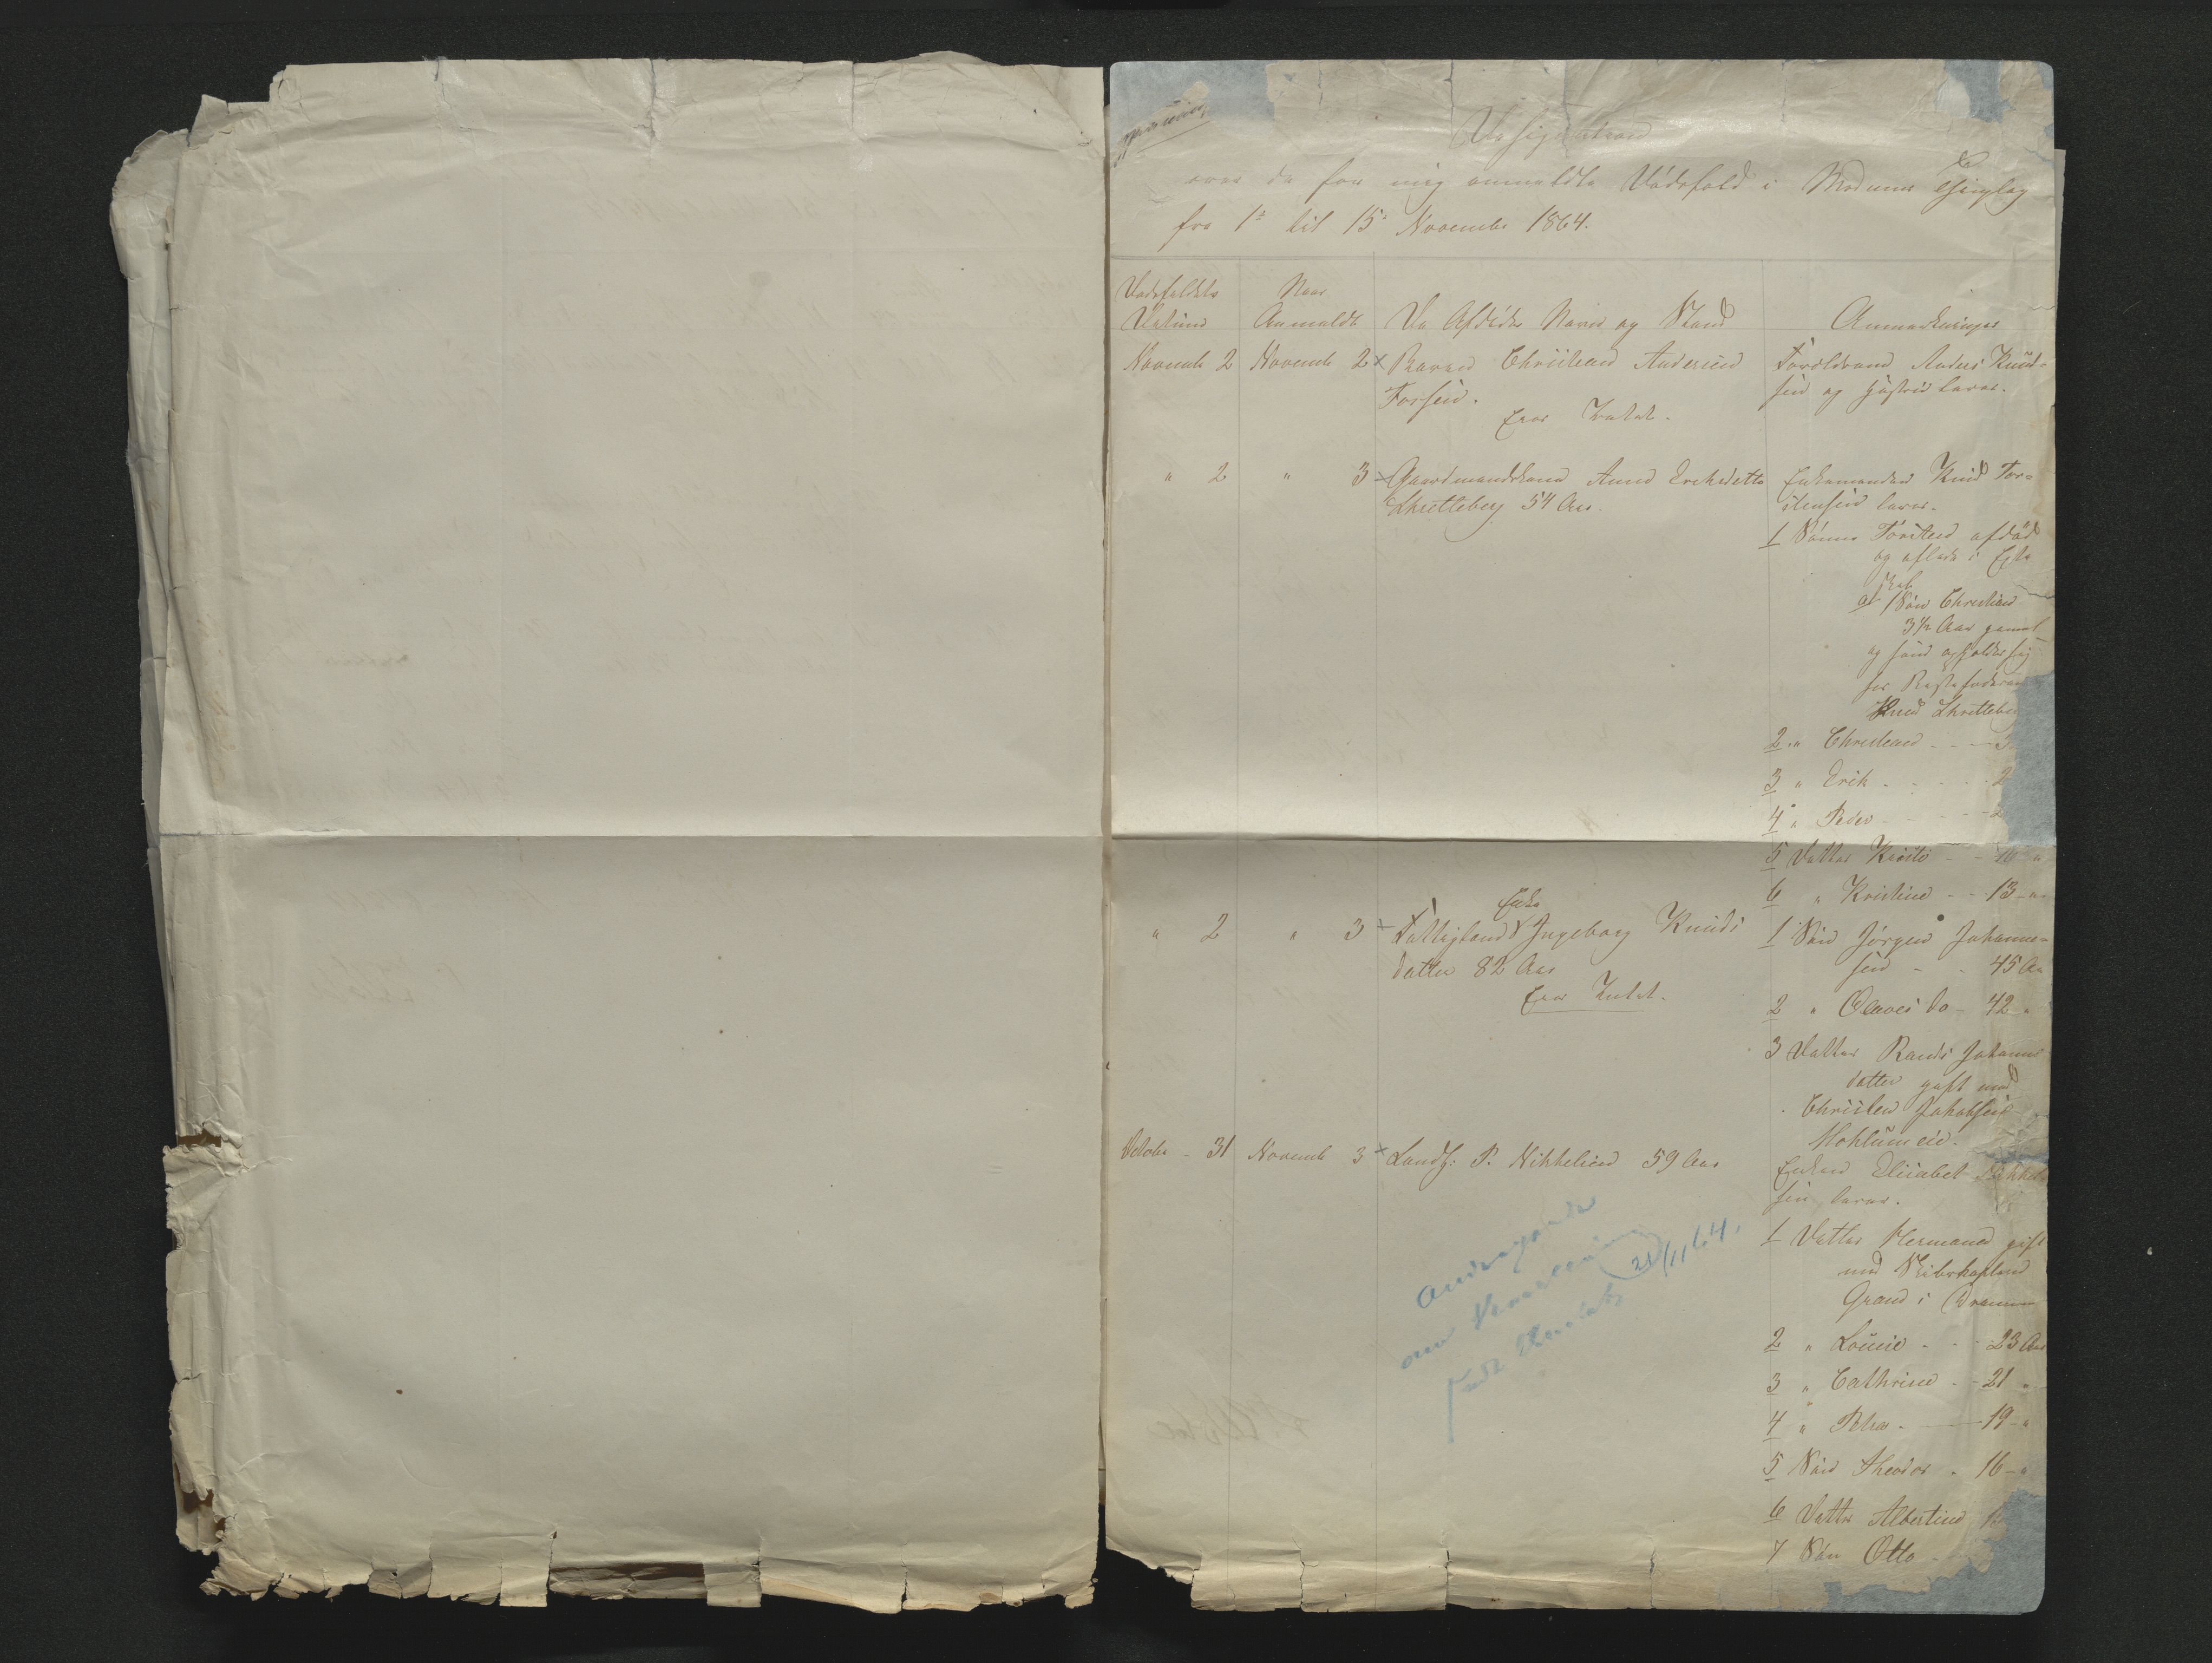 Designation
over de for mig anmeldte Dødsfald i Modums Thinglag
fra 1ste til 15de Novembr 1864.
Dødsfaldets
Datum
Naar
Anmeldt
De Afdødes Navn og Stand
Anmærkninger
Novemb 2 Novemb 2 x Barnet Christian Andersen
Forsen.
Eier Intet.
Forældrene Anders Knud-
sen og Hustru lever.
" 2 " 3 Gaardmandskone Anne Eriksdatter
Skretteberg 54 Aar.
Enkemanden Knud Tor-
stensen lever.
1 Sønne Torsten afdød
og aflede i Egte
skab
a 1 Søn Christian
3 1/2 Aar gammel
og som opholder sig
hos Bestefaderen
Knud Skrettebe
2 " Christian
3 " Erik - 2
4 " Peder - 2
5 Datter Kristi - 16 "
6 " Kristine - 13 "
" 2 " 3 Fattiglem Ingeborg Knuds
Enke
datter 82 Aar
Eier Intet.
1 Søn Jørgen Johanne-
sen - 45 Aa
2 " Olaves do 42 "
3 Datter Randi Johannes
datter gift med
Christen Jakobsen
Mohlumeie.
October - 31 Novemb 3 x Landh: P. Mikkelsen 59 Aar
Enken Elisabet Mikkel
sen lever.
1 Datter Hermane gift
med Skibskaptein
Gran i Drammen
2 " Louise - 23 Aar
3 " Cathrine - 21 "
4 " Petra - 19 "
5 Søn Theodor - 16 "
6 Datter Albertine
7 Søn Otto
21/11 64.